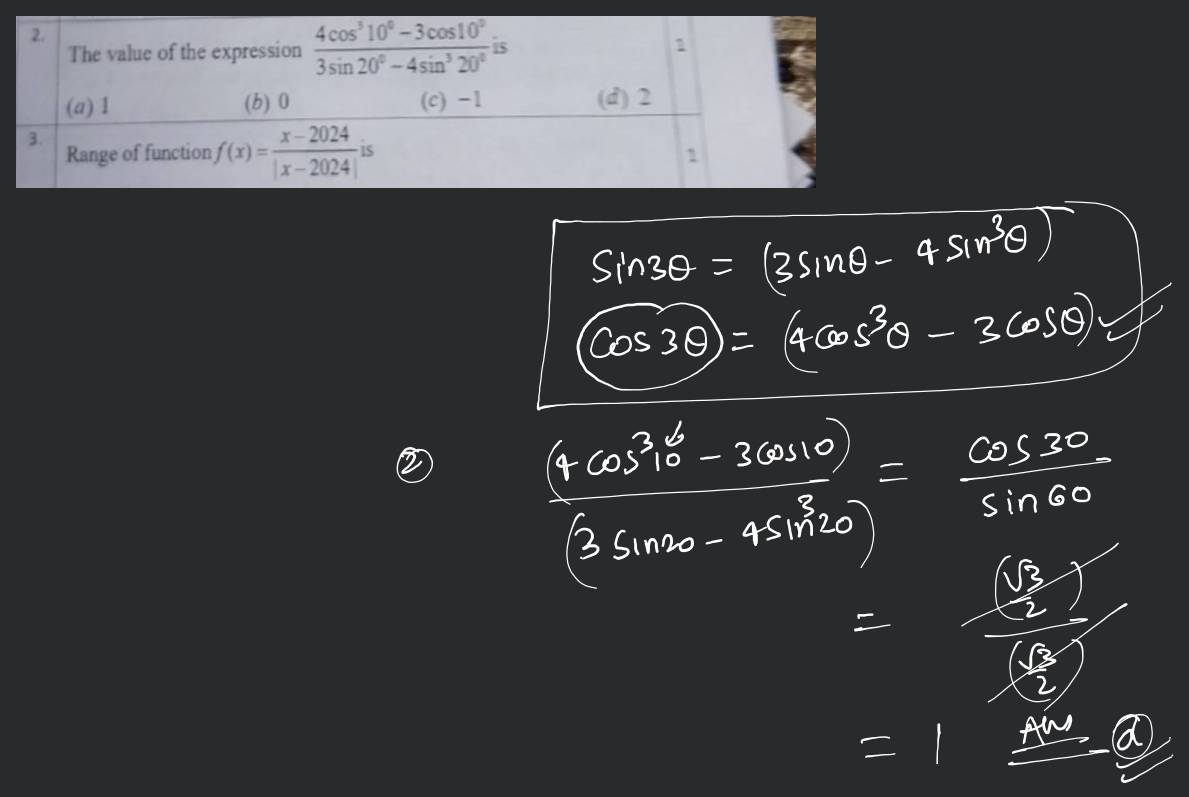 2. The value of the expression (4cos³10⁰ – 3cos10⁰)/(3sin 20⁰ – 4sin³ 20⁰) is 1
(a) 1 (b) 0 (c) –1 (d) 2
3. Range of function f(x) = (x – 2024)/|x – 2024| is 1
Sin3θ = (3sinθ - 4 sin³θ)
Cos 3θ = (4cos³θ - 3cosθ)
② (4 cos³10 - 3cos10)/(3 sin20 - 4sin³20) = cos30/sin60
= (√3/2)/(√3/2)
= 1 Ans - ⓐ